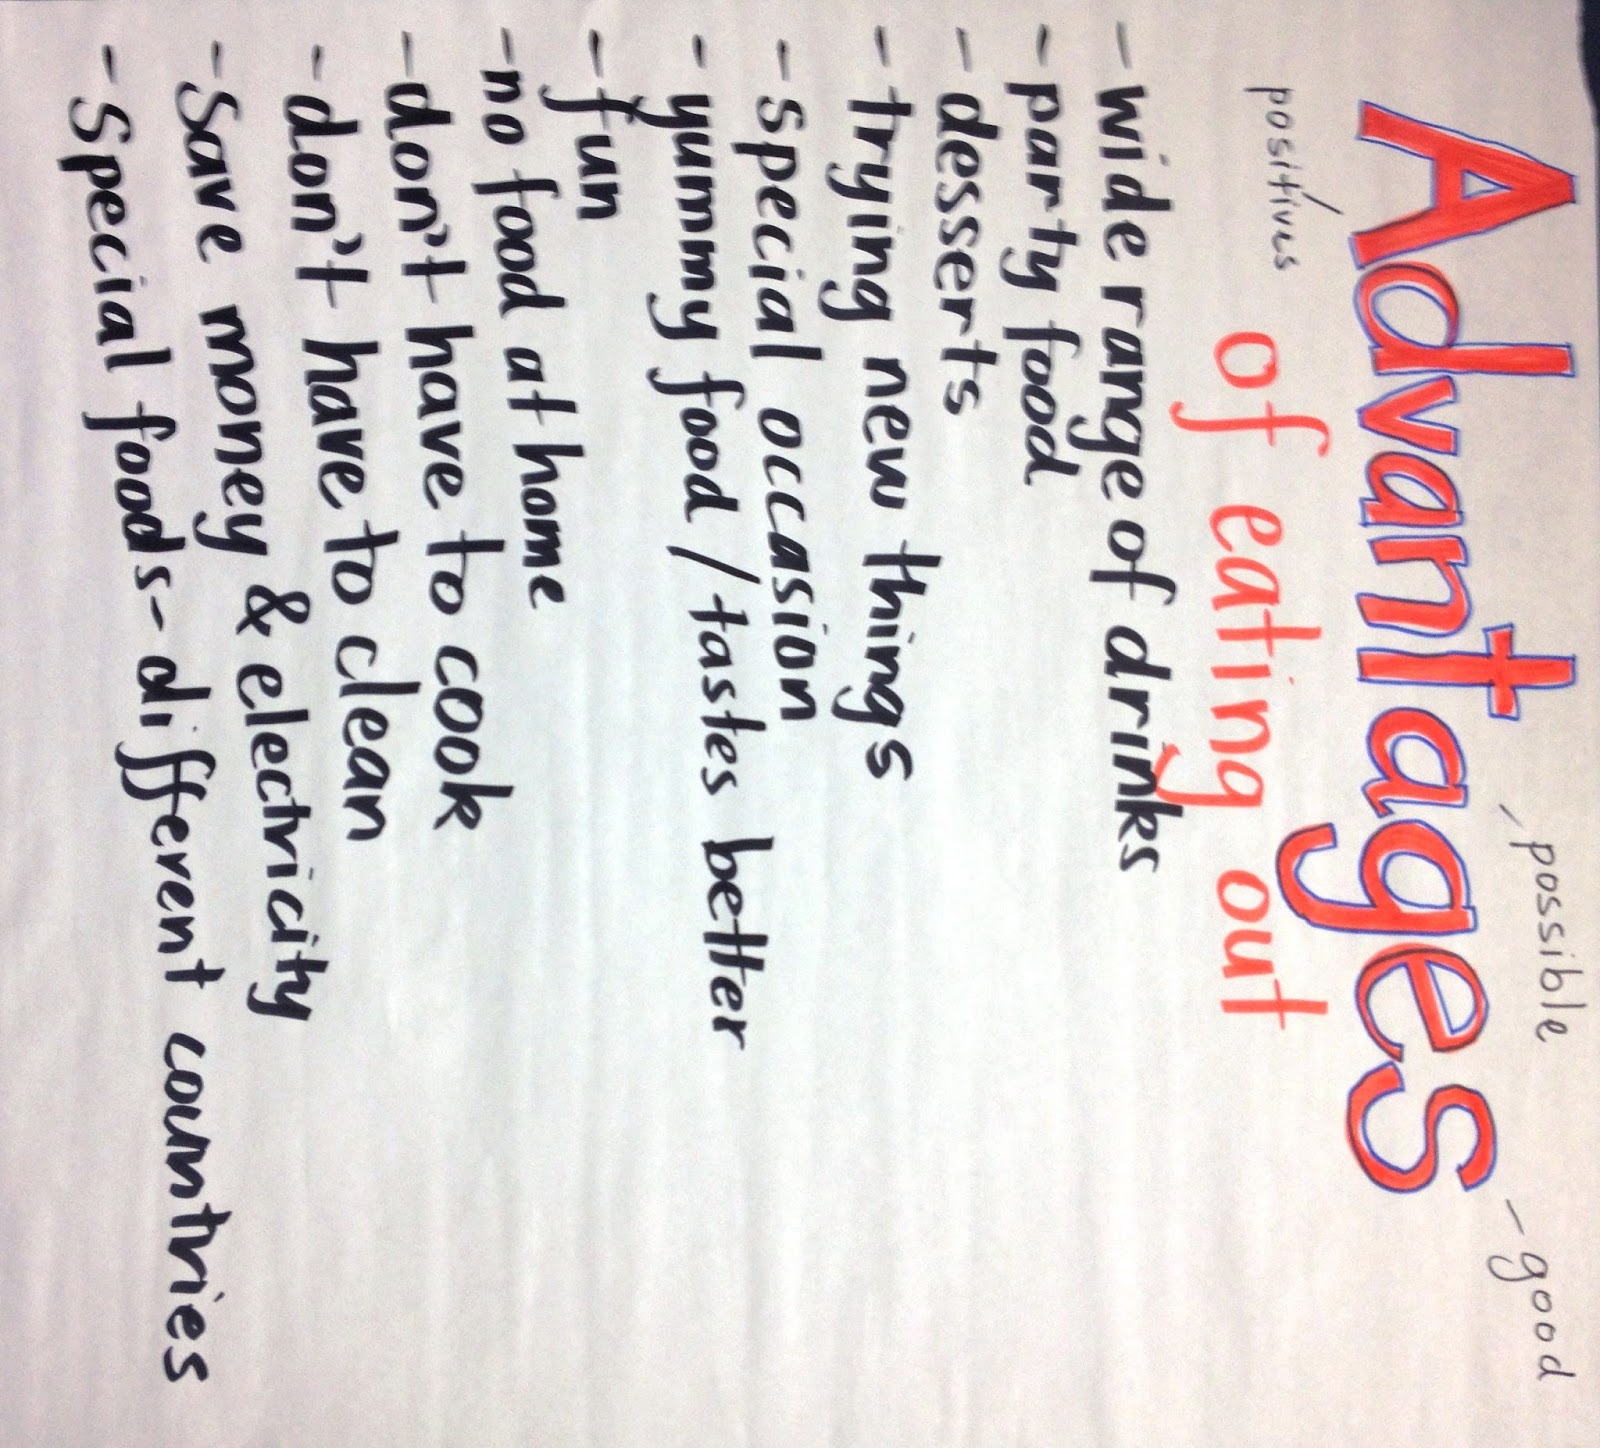 possible
- good
Advantages
positives
of eating out
- wide range of drinks
- party food
- desserts
- trying new things
- special occasion
- yummy food / tastes better
- fun
- no food at home
- don't have to cook
- don't have to clean
- Save money & electricity
- Special foods - different countries